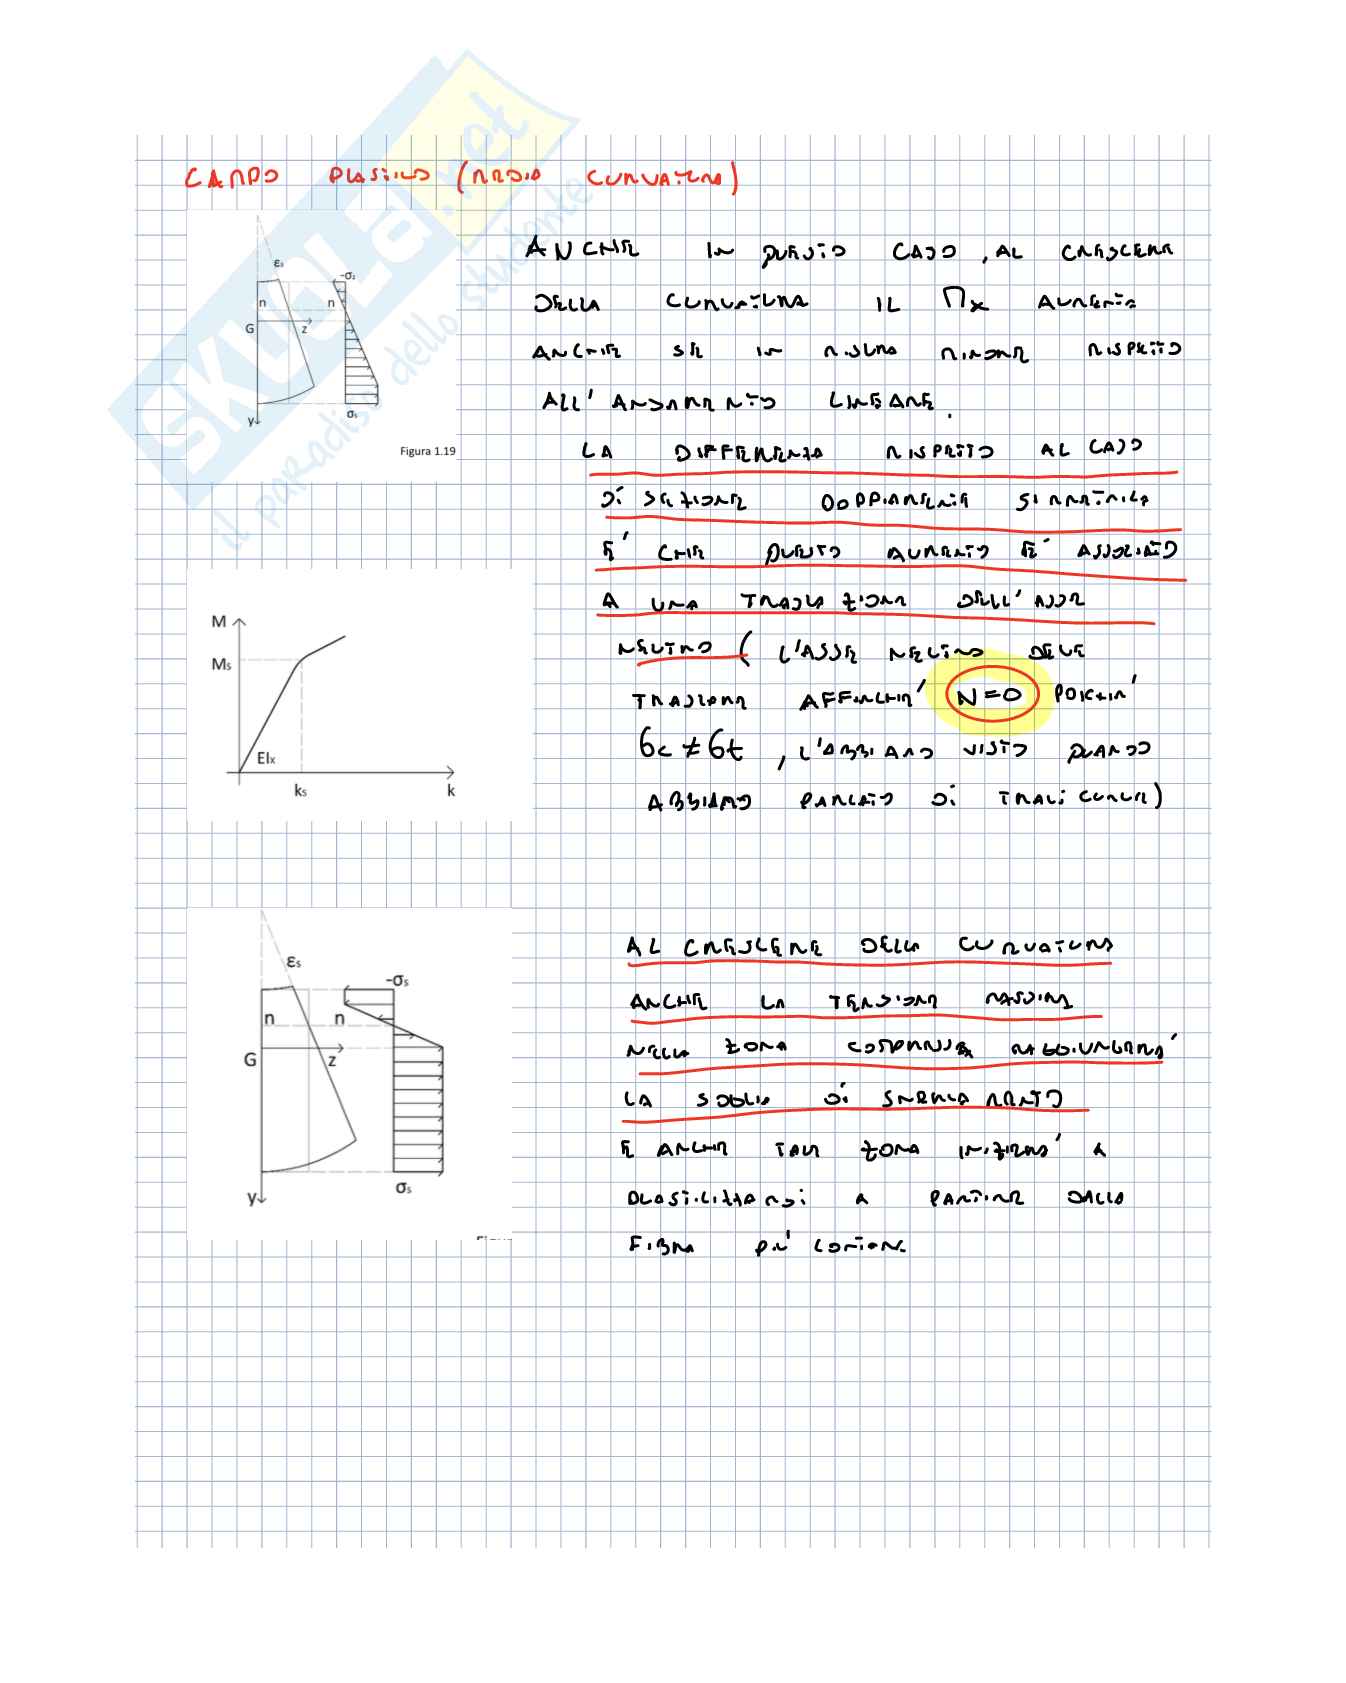 SKUOLA.net
il paradiso dello studente
CAMPO PLASTICO (MEDIA CURVATURA)
ANCHE IN QUESTO CASO, AL CRESCERE
DELLA CURVATURA IL Mx AUMENTA
ANCHE SE IN MISURA MINORE RISPETTO
ALL'ANDAMENTO LINEARE.
εs
-σs
n
n
G
z
y
σs
Figura 1.19
LA DIFFERENZA RISPETTO AL CASO
DI SEZIONE DOPPIAMENTE SIMMETRICA
E' CHE QUESTO AUMENTO E' ASSOCIATO
A UNA TRASLAZIONE DELL'ASSE
NEUTRO (L'ASSE NEUTRO DEVE
TRASLARE AFFINCHE' N=0 POICHE'
σc≠σt, L'ABBIAMO VISTO QUANDO
ABBIAMO PARLATO DI TRAVI CURVE)
M
Ms
EIx
ks
k
AL CRESCERE DELLA CURVATURA
ANCHE LA TENSIONE MASSIMA
NELLA ZONA COMPRESSA RAGGIUNGERA'
LA SOGLIA DI SNERVAMENTO
E ANCHE TALE ZONA INIZIERA' A
PLASTICIZZARSI A PARTIRE DALLA
FIBRA PIU' LONTANA
εs
-σs
n
n
G
z
y
σs